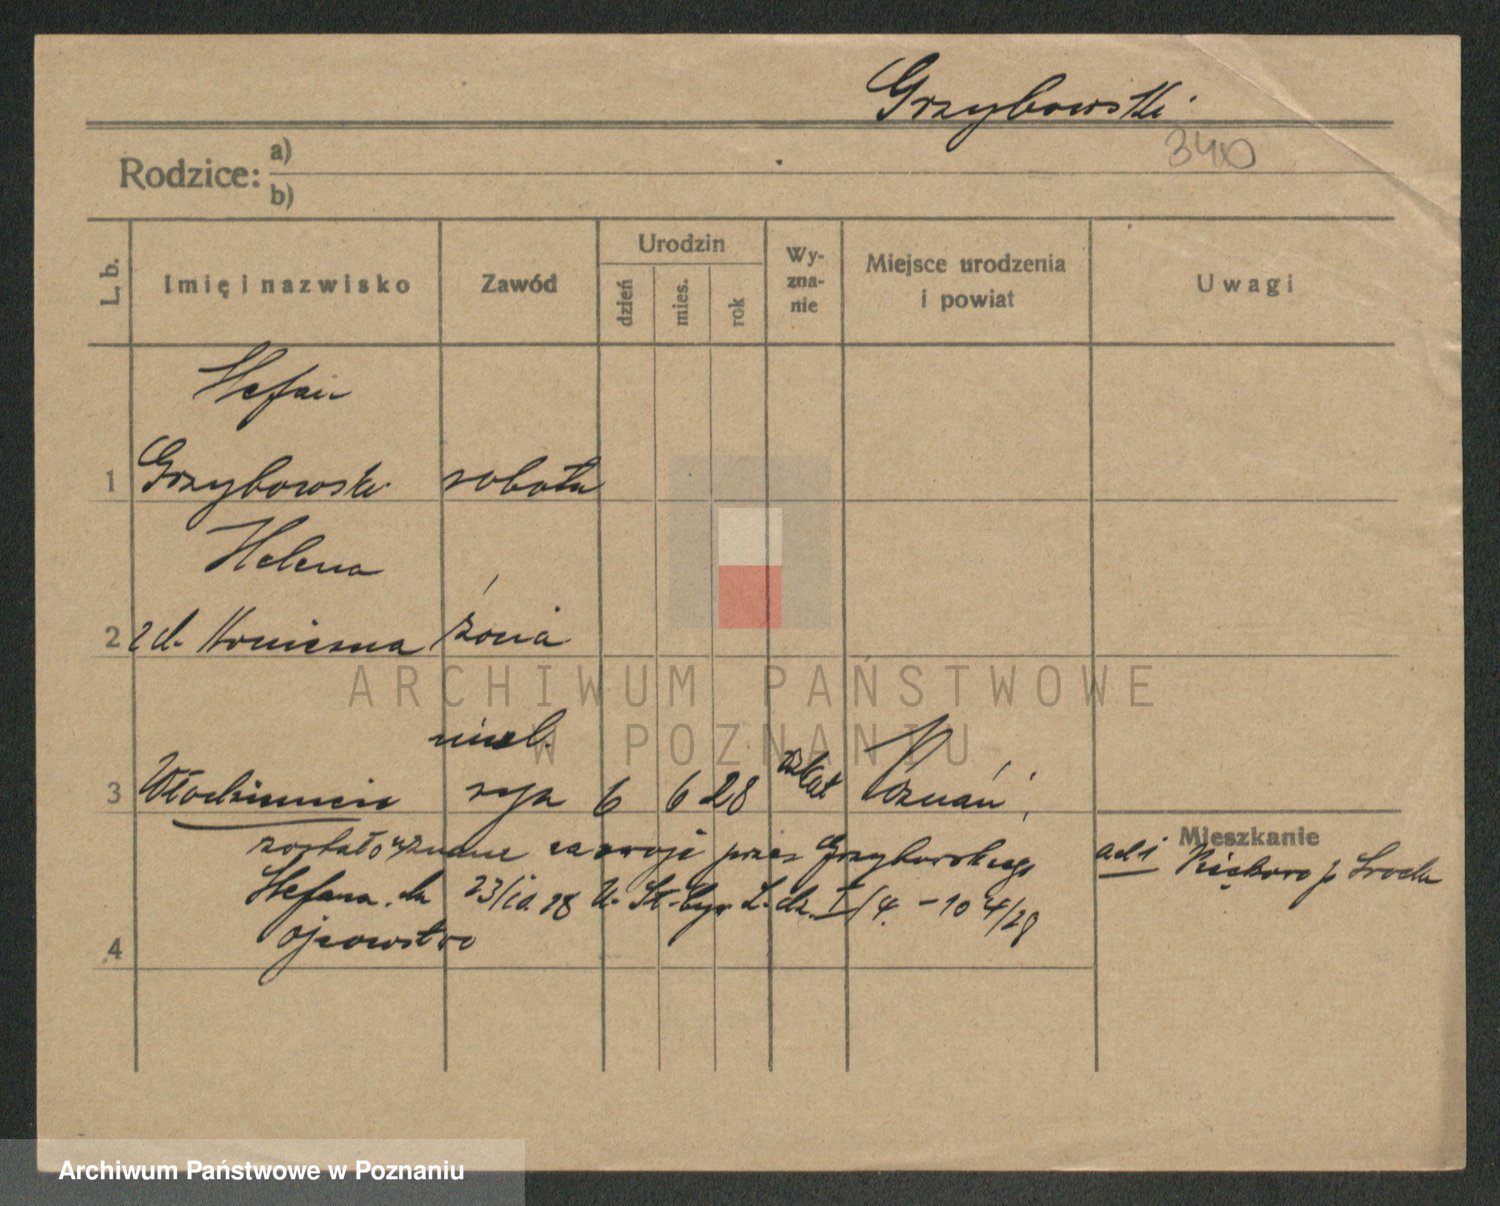 Grzybowski
340
Rodzice: a)
b)
L. b.
Imię i nazwisko
Zawód
Urodzin
dzień
mies.
rok
Wy-
zna-
nie
Miejsce urodzenia
i powiat
Uwagi
Stefan
1 Grzybowski robotn
Helena
2 zd. Konieczna żona
niezl.
3 Włodzimierz syn 6 6 28 rz kat Poznań
zostało uznane za swoje przez Grzybowskiego
Stefana. dn 23/10 28 U. St. L. dz. I/4. – 10 4/28
ojcowstwo
4
Mieszkanie
ad 1 p Środa
ARCHIWUM PAŃSTWOWE
W POZNANIU
Archiwum Państwowe w Poznaniu